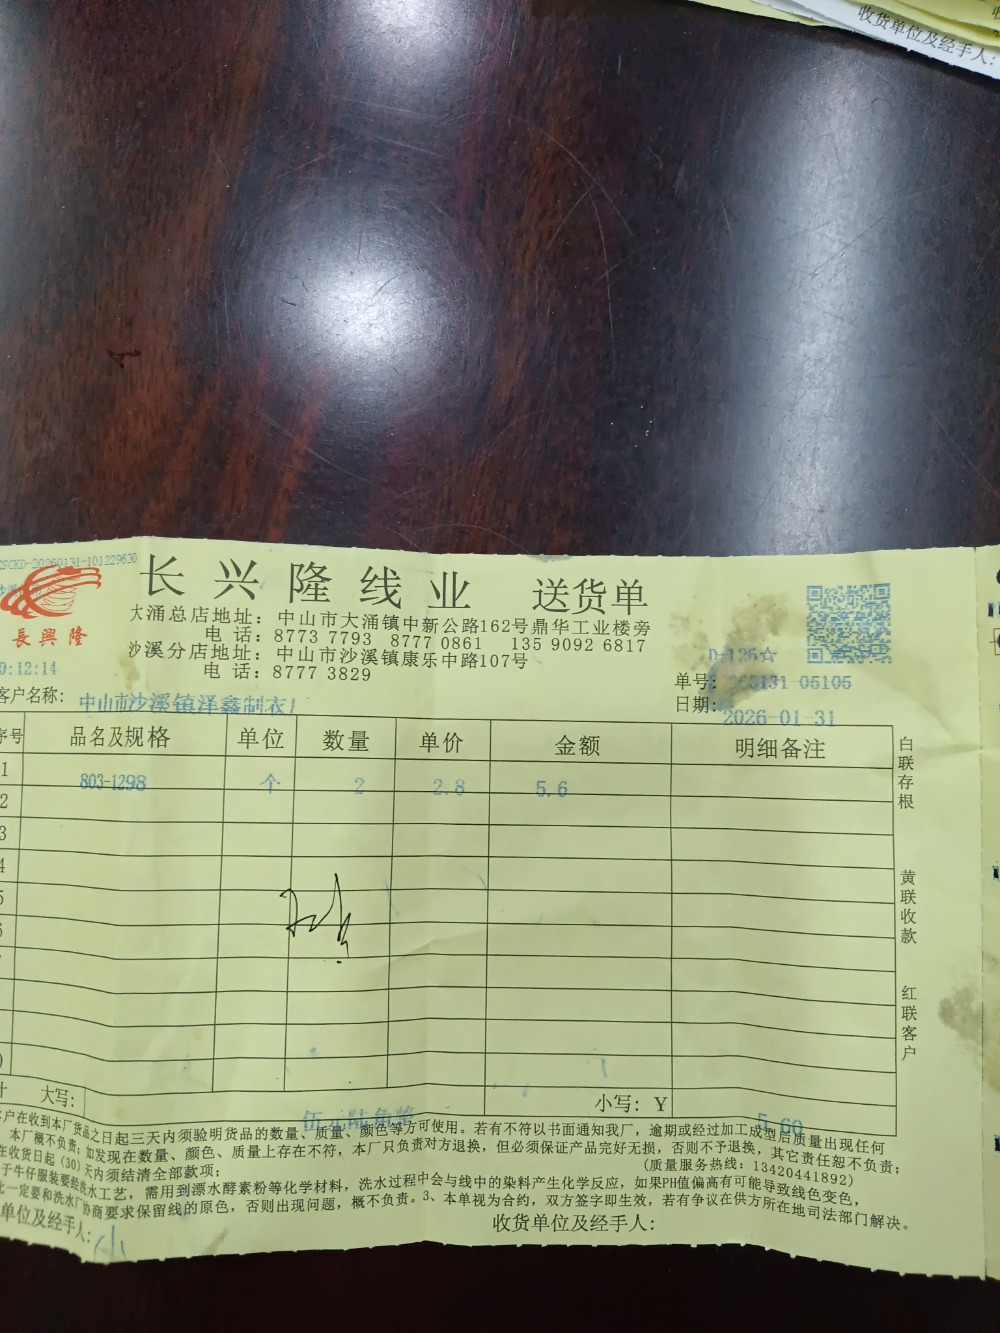 收货单位及经手人:
SCKD-20260131-101229630
长兴隆线业 送货单
長興隆
大涌总店地址：中山市大涌镇中新公路162号鼎华工业楼旁
电 话：8773 7793 8777 0861 135 9092 6817
沙溪分店地址：中山市沙溪镇康乐中路107号
电 话：8777 3829
D-125☆
0:12:14
单号: 05105
客户名称: 中山市沙溪镇泽鑫制衣厂
日期: 2026-01-31
序号 品名及规格 单位 数量 单价 金额 明细备注
1 803-1298 个 2 2.8 5.6
2
3
4
5
6
白联存根
黄联收款
红联客户
计 大写: 伍元陆角整 小写: Y 5.60
户在收到本厂货品之日起三天内须验明货品的数量、质量、颜色等方可使用。若有不符以书面通知我厂，逾期或经过加工成型后质量出现任何
本厂概不负责;如发现在数量、颜色、质量上存在不符，本厂只负责对方退换，但必须保证产品完好无损，否则不予退换，其它责任恕不负责；
在收货日起(30)天内须结清全部款项； (质量服务热线：13420441892)
于牛仔服装要经洗水工艺，需用到漂水酵素粉等化学材料，洗水过程中会与线中的染料产生化学反应，如果PH值偏高有可能导致线色变色，
一定要和洗水厂协商要求保留线的原色，否则出现问题，概不负责。3、本单视为合约，双方签字即生效，若有争议在供方所在地司法部门解决。
单位及经手人: 收货单位及经手人: